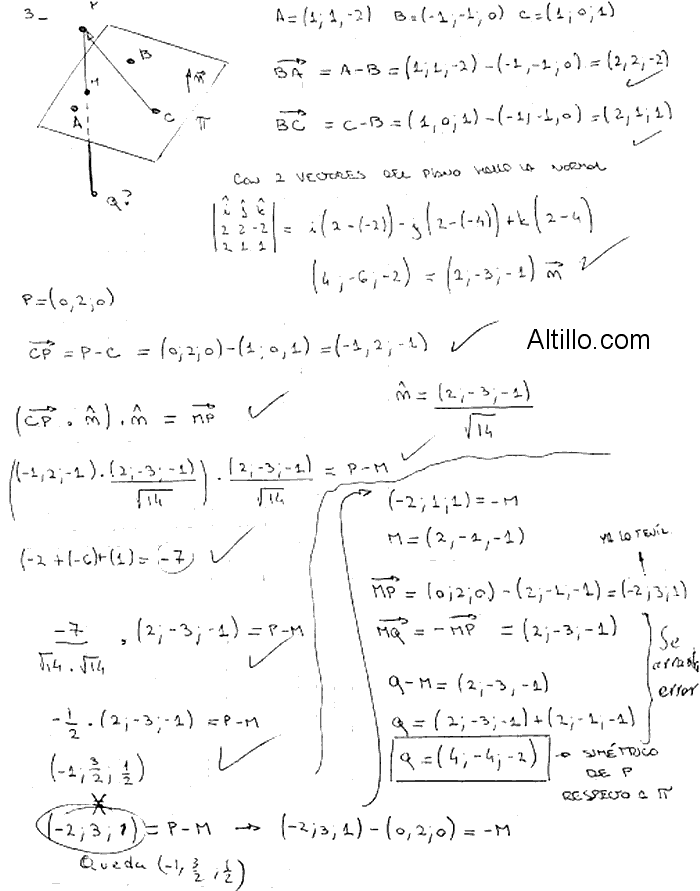 3_
P
B
M
A
C
π
Q?
A=(1;1,-2) B=(-1;-1;0) C=(1;0;1)
BA = A-B = (1;1,-2) - (-1,-1;0) = (2,2,-2)
BC = C-B = (1,0;1) - (-1;-1,0) = (2,1;1)
CON 2 VECTORES DEL PLANO HALLO LA NORMAL
|î ĵ k̂|
|2 2 -2| = i(2-(-2)) - j(2-(-4)) + k(2-4)
|2 1 1|
(4;-6;-2) = (2;-3;-1) n
P=(0,2;0)
CP = P-C = (0;2;0) - (1;0,1) = (-1,2,-1)
Altillo.com
n̂ = (2;-3;-1)/√14
(CP . n̂) . n̂ = MP
((-1,2;-1) . (2;-3;-1)/√14) . (2;-3,-1)/√14 = P-M
(-2+(-6)+(1) = -7
-7/√14.√14 . (2;-3;-1) = P-M
-1/2 . (2;-3;-1) = P-M
(-1; 3/2; 1/2)
(-2;3;1) = P-M → (-2;3,1) - (0,2;0) = -M
Queda (-1, 3/2, 1/2)
(-2;1;1) = -M
M = (2,-1,-1)
YA LO TENÍA
MP = (0;2;0) - (2;-1,-1) = (-2;3;1)
MQ = -MP = (2;-3;-1)
Q-M = (2;-3,-1)
Q = (2;-3;-1) + (2;-1,-1)
Se arrastra error
Q = (4;-4;-2) → SIMÉTRICO
DE P
RESPECTO A π